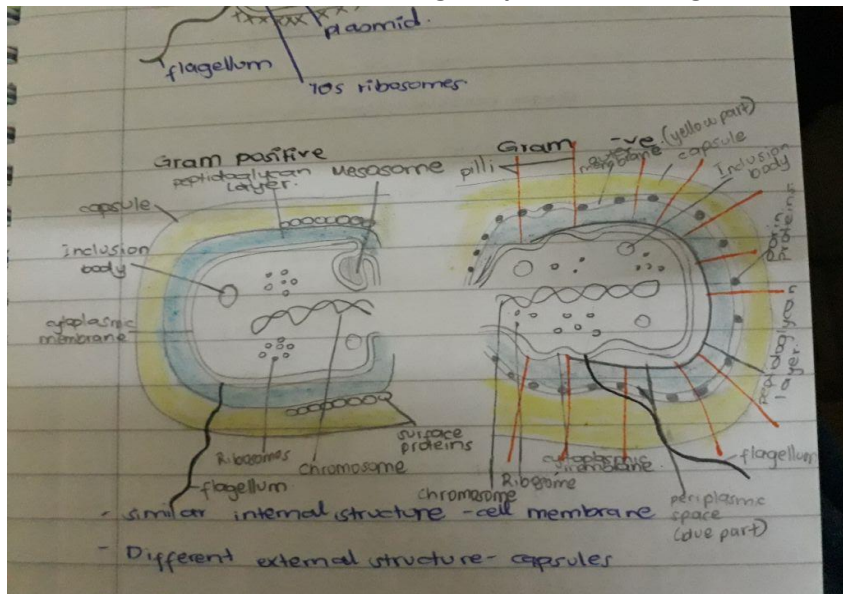 plasmid.
flagellum
70s ribosomes
Gram positive
peptidoglycan layer.
Mesosome
capsule
inclusion body
cytoplasmic membrane
Ribosomes
chromosome
surface proteins
flagellum
Gram -ve.
(yellow part)
pilli
outer membrane
capsule
Inclusion body
porin proteins
peptidoglycan layer.
flagellum
periplasmic space
(blue part)
Ribosome
chromosome
- similar internal structure - cell membrane
- Different external structure - capsules